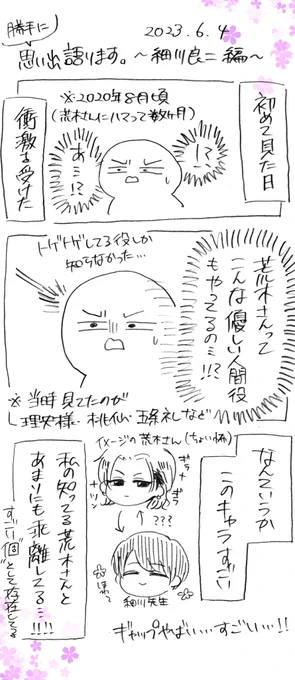 勝手に
2023.6.4
思い出語ります。〜細川良二編〜
初めて見た日
※2020年8月頃
(荒木さんにハマって数ヶ月)
!?
あ…!?
衝撃を受けた
トゲトゲしてる役しか
知らなかった…
荒木さんって
こんな優しい人間役
もやってるの…!!?
※当時見てたのが
理史様・桃仙・玉礼など
なんていうか
このキャラすごい
イメージの荒木さん(ちょい怖)
ギラ
ギラ
ツン
???
ほわ
細川先生
私の知ってる荒木さんと
あまりにも乖離してる…!!!!
すごい"個"として存在してる
ギャップやばい…すごい…!!